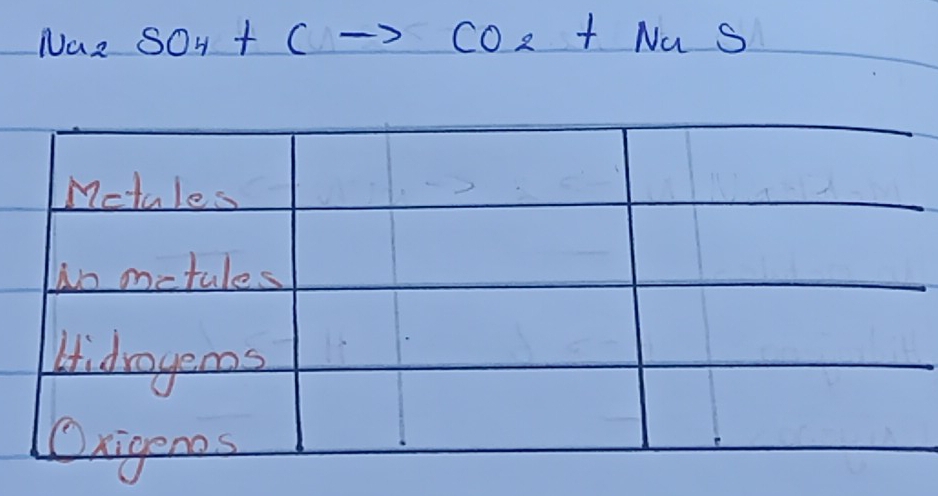 Na2 SO4 + C -> CO2 + Na S
Metales
No metales
Hidrogenos
Oxigenos